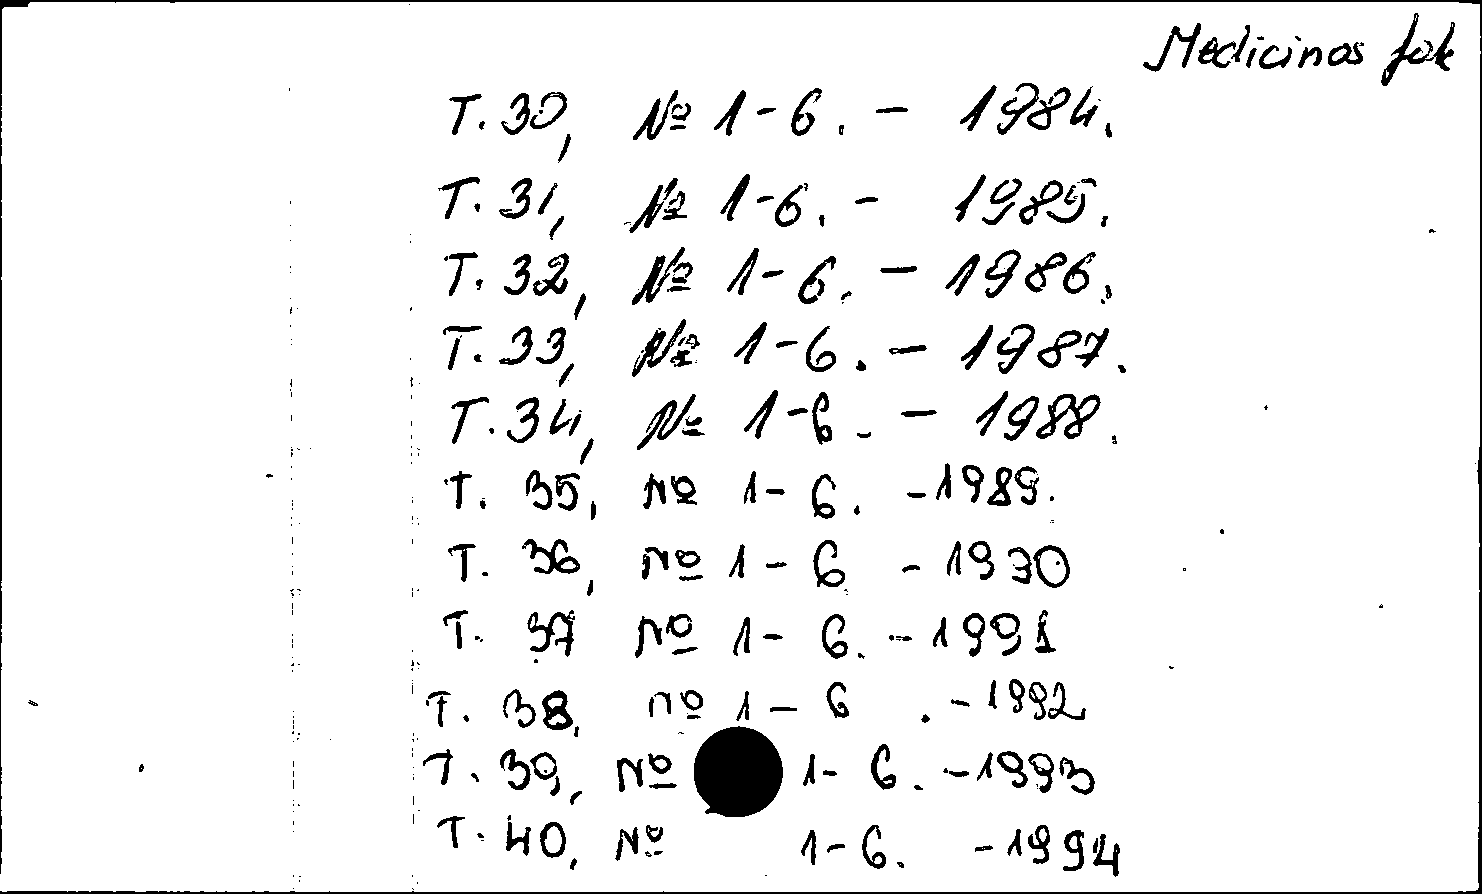 Medicinos fak
T. 30, № 1-6. - 1984.
T. 31, № 1-6. - 1985.
T. 32, № 1-6. - 1986.
T. 33, № 1-6. - 1987.
T. 34, № 1-6. - 1988.
T. 35, № 1-6. - 1989.
T. 36, № 1-6 - 1990
T. 37 № 1-6. - 1991
T. 38, № 1-6. - 1992
T. 39, № 1-6. - 1993
T. 40, № 1-6. - 1994